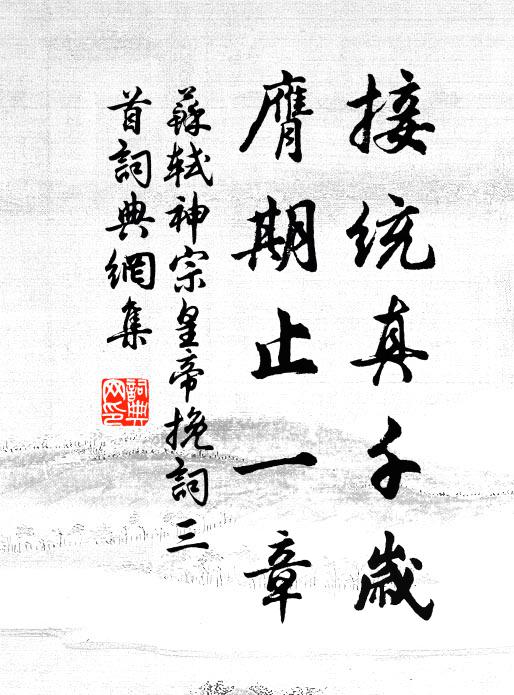 接統真千歲
膺期止一章
蘇軾神宗皇帝挽詞三
首詞典網集
詞典
网印